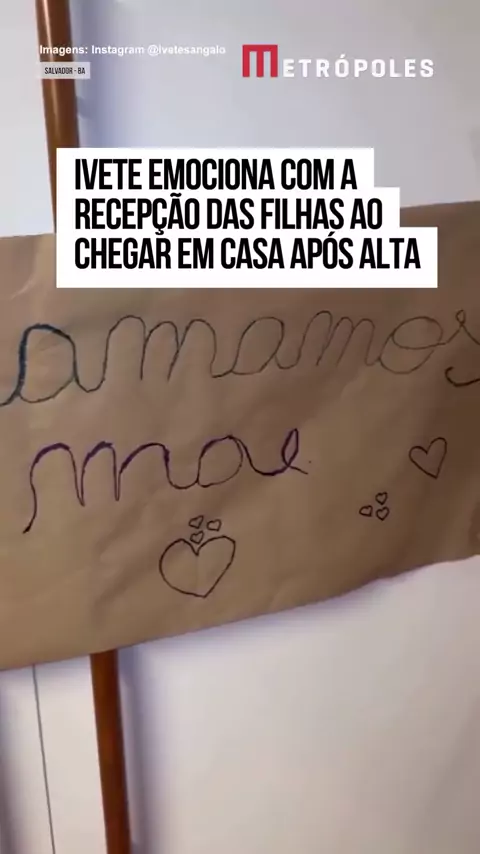 Imagens: Instagram @ivetesangalo
SALVADOR - BA
METRÓPOLES
IVETE EMOCIONA COM A
RECEPÇÃO DAS FILHAS AO
CHEGAR EM CASA APÓS ALTA
amamos
mae